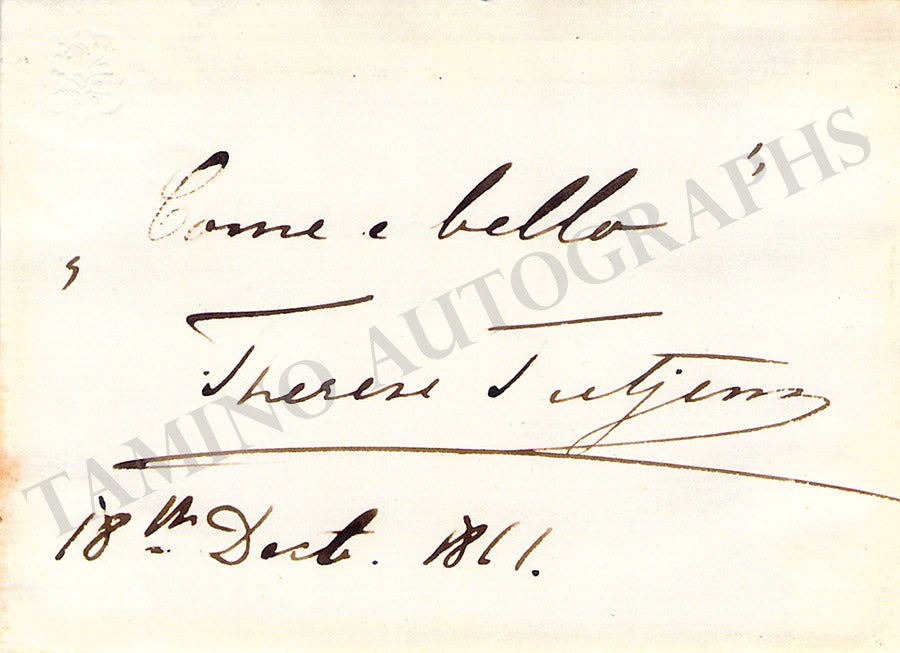 „Come e bello"
Therese Tietjens
18th Decb. 1861.
TAMINO AUTOGRAPHS